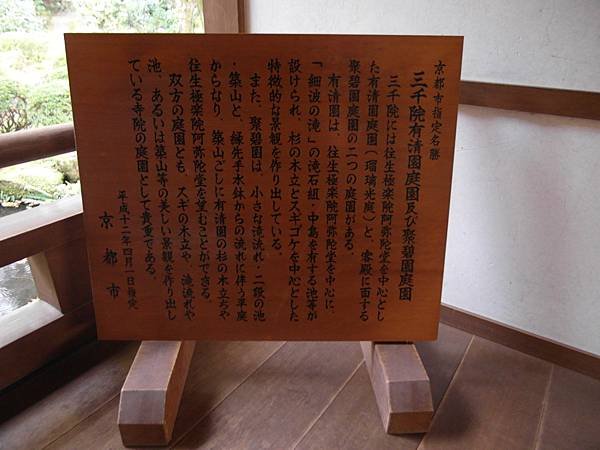 京都市指定名勝
三千院有清園庭園及び聚碧園庭園
三千院には往生極楽院阿弥陀堂を中心とし
た有清園庭園(瑠璃光庭)と、客殿に面する
聚碧園庭園の二つの庭園がある。
有清園は、往生極楽院阿弥陀堂を中心に
「細波の滝」の滝石組・中島を有する池等が
設けられ、杉の木立とスギゴケを中心とした
特徴的な景観を作り出している。
また、聚碧園は、小さな滝流れ・二段の池
・築山と、縁先手水鉢からの流れに伴う平庭
からなり、築山ごしに有清園の杉の木立ちや
往生極楽院阿弥陀堂を望むことができる。
双方の庭園とも、スギの木立や、滝流れや
池、あるいは築山等の美しい景観を作り出し
ている寺院の庭園として貴重である。
平成十二年四月一日指定
京都市